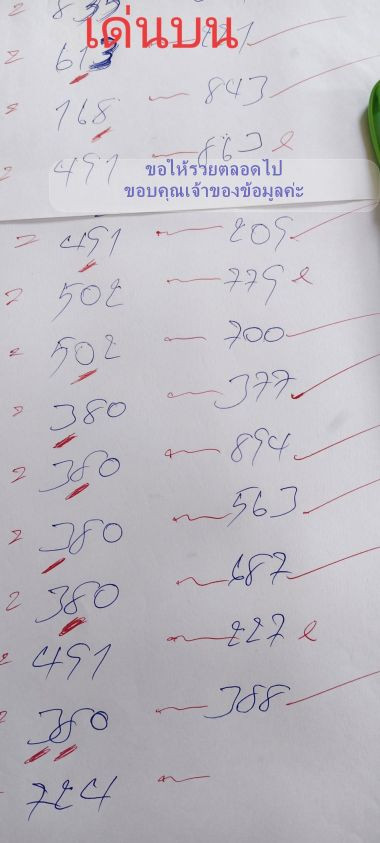 เด่นบน
613
168 — 843
491 — 863 ℓ
ขอให้รวยตลอดไป
ขอบคุณเจ้าของข้อมูลค่ะ
2 491 — 209
2 502 — 779 ℓ
2 502 — 700
2 380 — 377
2 380 — 894
2 380 — 563
2 380 — 687
2 491 — 227 ℓ
2 380 — 388
724 —